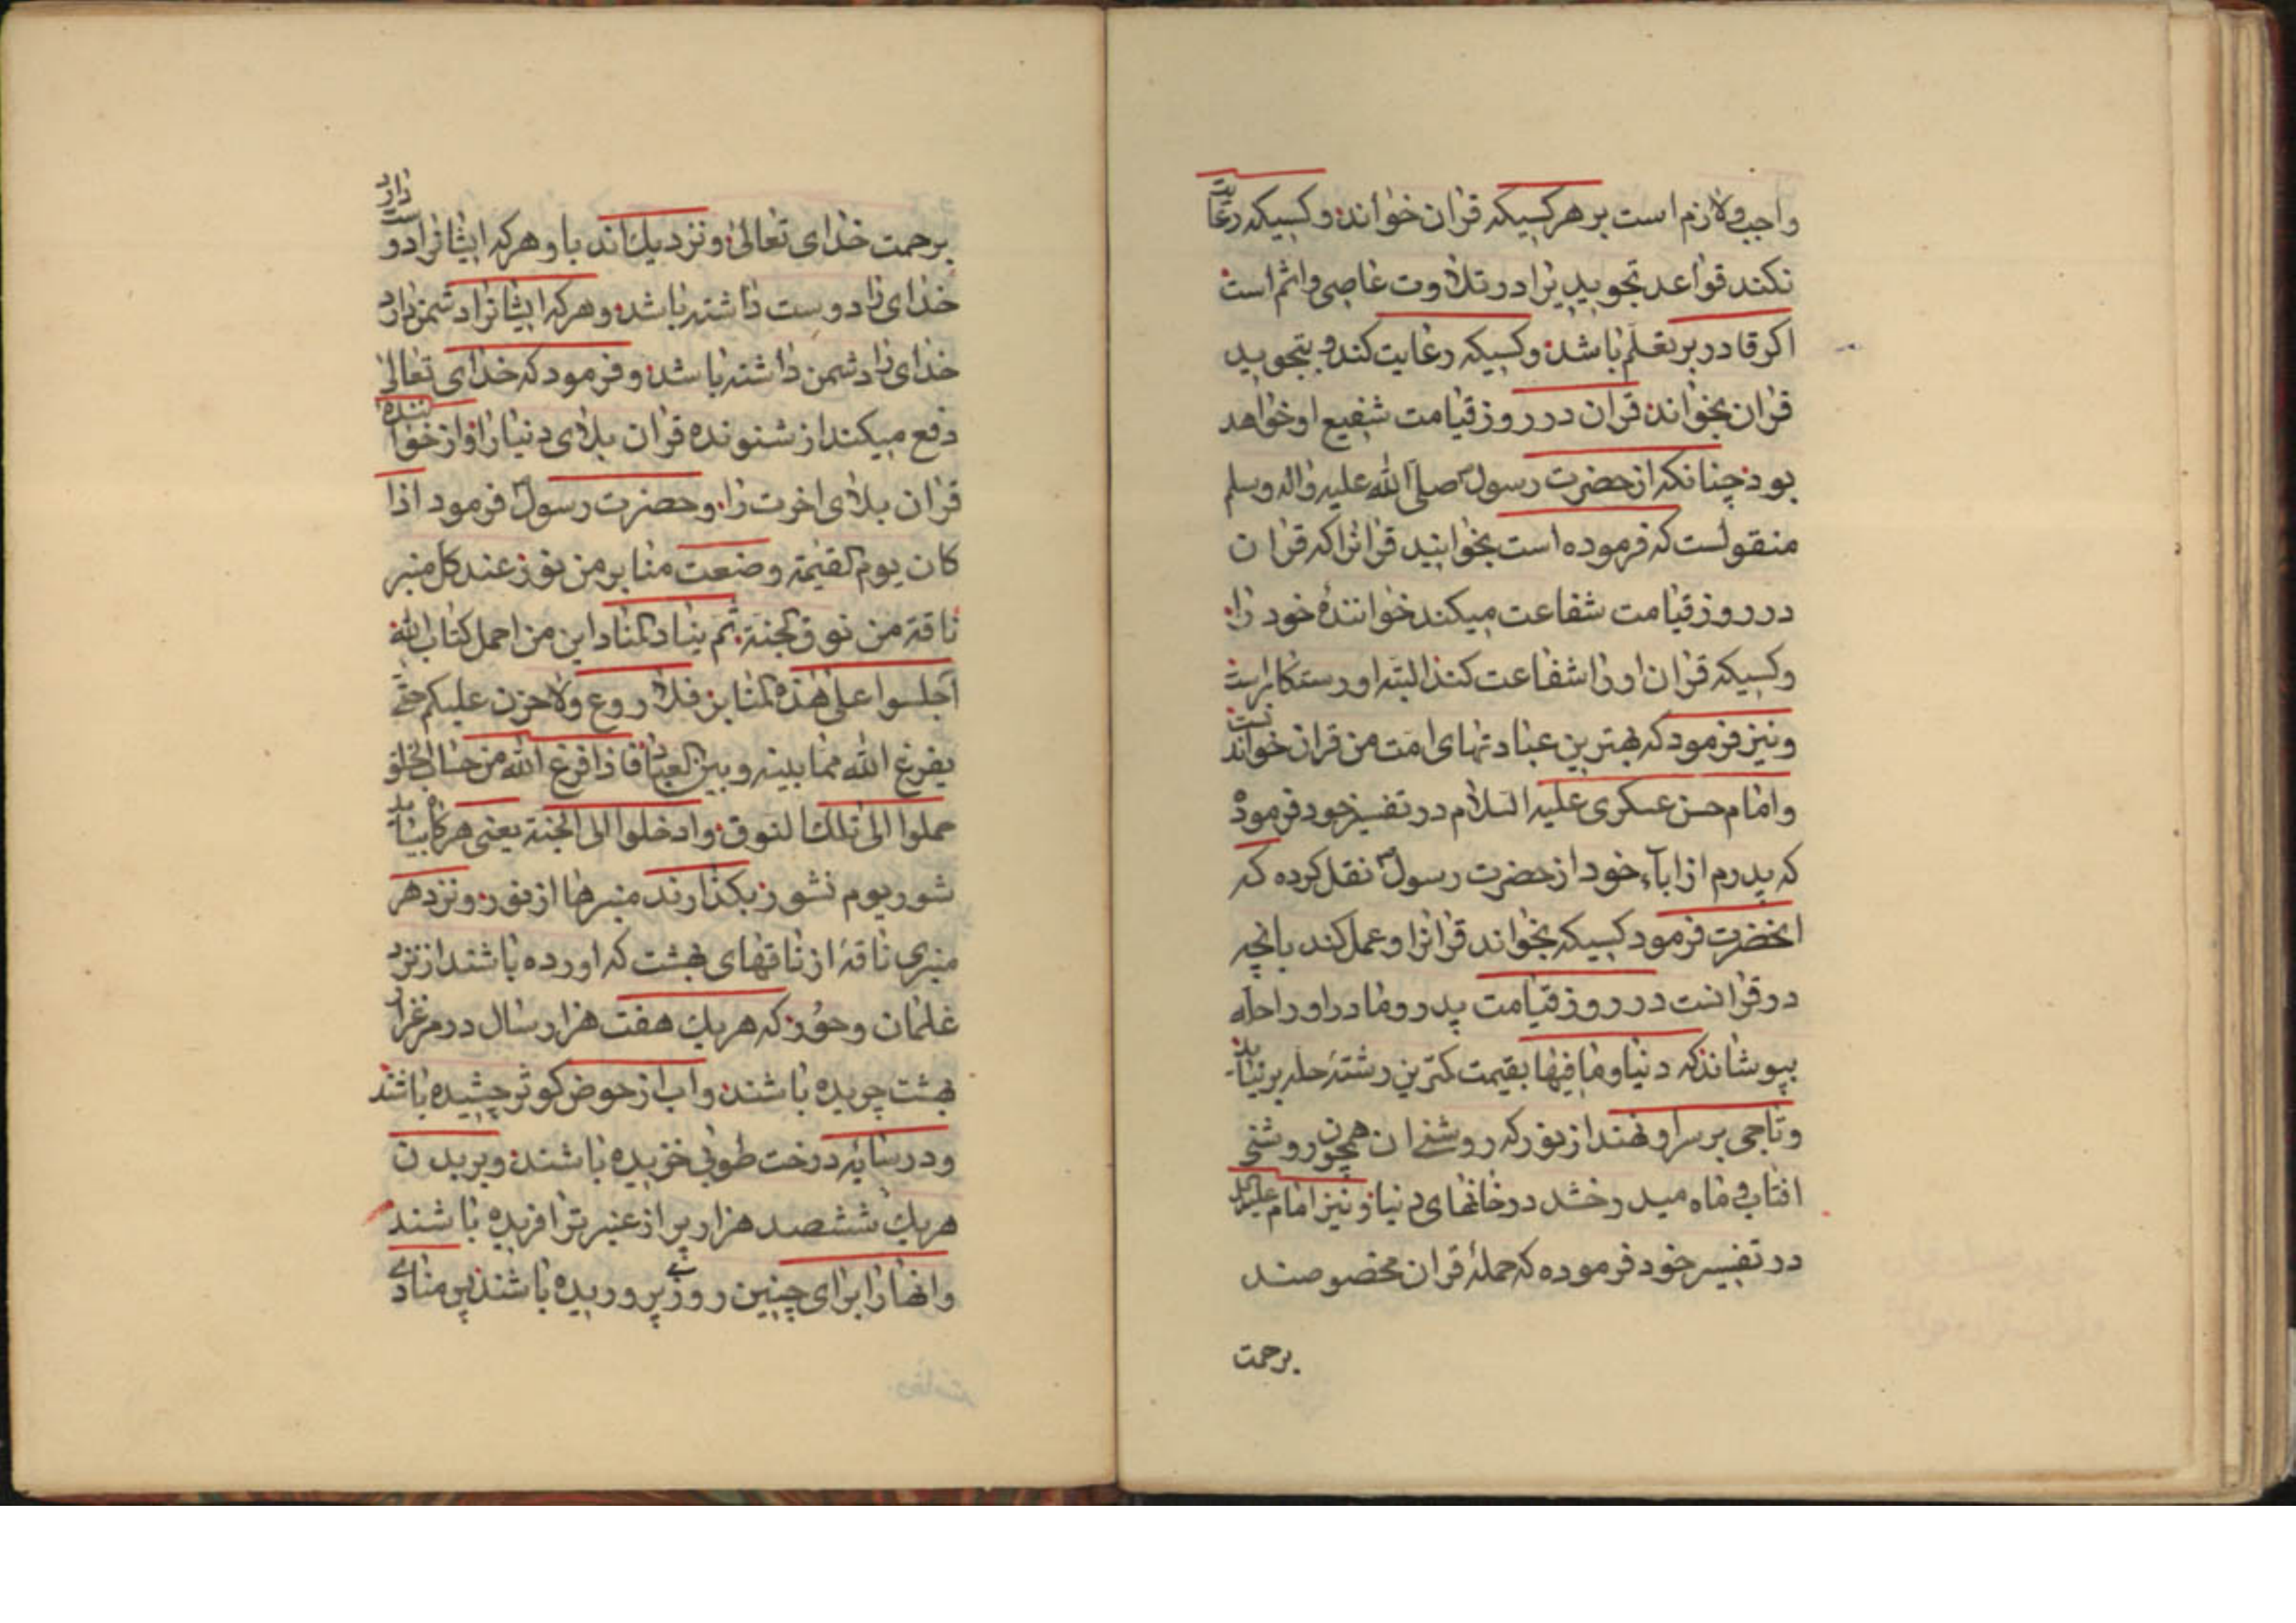 واجب ولازم است بر هر کسیکه قران خواند و کسیکه رعایت
نکند قواعد تجوید یرا در تلاوت عاصی و اثم است
اکر قادر بر تعلم باشد و کسیکه رعایت کند و بتجوید
قران بخواند قران در روز قیامت شفیع او خواهد
بود چنانکه از حضرت رسول صلی الله علیه واله وسلم
منقولست که فرموده است بخوانید قرانرا که قران
در روز قیامت شفاعت میکند خوانندهٔ خود را
وکسیکه قران او را شفاعت کند البته او رستکار است
ونیز فرمود که بهترین عبادتهای امت من قران خواندنست
وامام حسن عسکری علیه السلام در تفسیر خود فرموده
که پدرم از اباء خود از حضرت رسول نقل کرده که
انحضرت فرمود کسیکه بخواند قرانرا و عمل کند بانچه
در قرانست در روز قیامت پدر و مادر او را حله
بپوشانند که دنیا و مافیها بقیمت کمترین رشتهٔ حله بر نیاید
وتاجی بر سر او نهند از نور که روشنی ان همچون روشنی
افتاب و ماه میدرخشد در خانهای دنیا و نیز امام علیه
در تفسیر خود فرموده که حملهٔ قران مخصوصند
برحمت
برحمت خدای تعالی و نزدیك اند باو هر که ایشانرا دوست دارد
خدای را دوست داشته باشد و هر که ایشانرا دشمن دارد
خدای را دشمن داشته باشد و فرمود که خدای تعالی
دفع میکند از شنونده قران بلای دنیا را و از خواننده
قران بلای اخرت را و حضرت رسول فرمود اذا
کان یوم القیمة وضعت منابر من نور عند کل منبر
ناقة من نوق الجنة ثم یناد المناد این من احمل کتاب الله
اجلسوا علی هذه المنابر فلا روع ولا حزن علیکم حتی
یفرغ الله مما بینه و بین العباد فاذا فرغ الله من حساب الخلق
حملوا الی تلك النوق وادخلوا الی الجنة یعنی هرکاه بیاید
شور یوم نشور بکذارند منبرها از نور و نزد هر
منبری ناقهٔ از ناقهای بهشت که اورده باشند از نزد
غلمان و حور که هر یك هفت هزار سال در مرغزار
بهشت چریده باشند و اب از حوض کوثر چشیده باشند
و در سایه درخت طوبی خزیده باشند و بر بدن
هر یك ششصد هزار پر از عنبر تر افریده باشند
وانها را برای چنین روزی پروریده باشند پس منادی